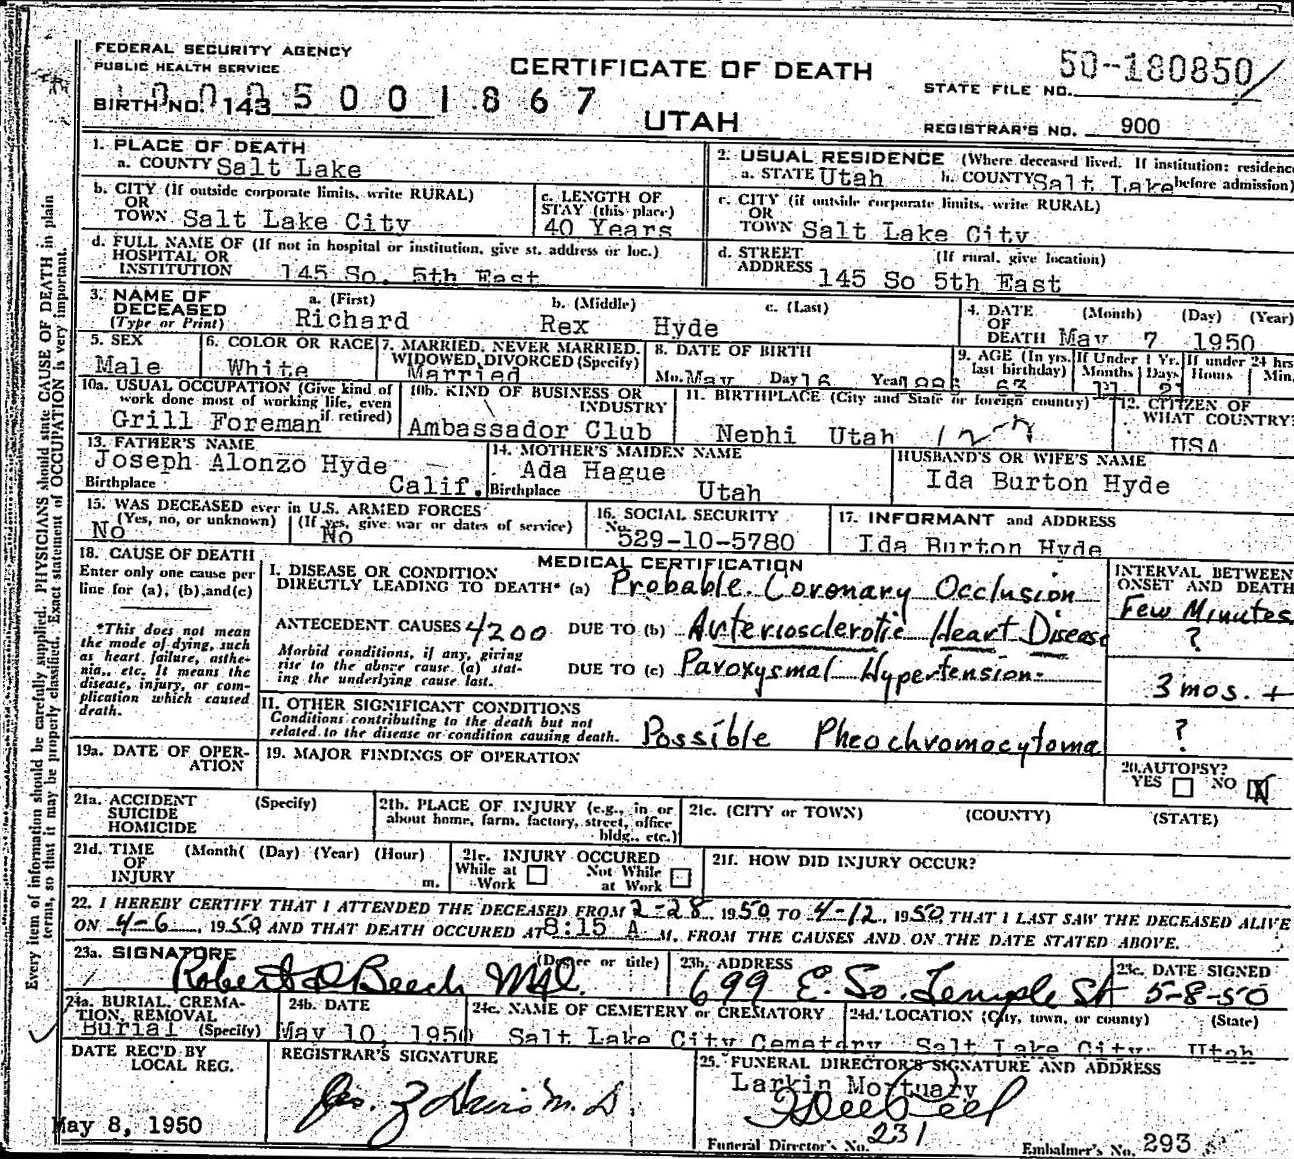 FEDERAL SECURITY AGENCY
PUBLIC HEALTH SERVICE
CERTIFICATE OF DEATH
UTAH
STATE FILE NO. 50-180850
BIRTH NO. 143 5001867
REGISTRAR'S NO. 900
1. PLACE OF DEATH
a. COUNTY Salt Lake
2. USUAL RESIDENCE (Where deceased lived. If institution: residence
a. STATE Utah b. COUNTY Salt Lake before admission)
b. CITY (If outside corporate limits, write RURAL)
OR
TOWN Salt Lake City
c. LENGTH OF
STAY (this place)
40 Years
c. CITY (if outside corporate limits, write RURAL)
OR
TOWN Salt Lake City
d. FULL NAME OF (If not in hospital or institution, give st. address or loc.)
HOSPITAL OR
INSTITUTION 145 So. 5th East
d. STREET (If rural, give location)
ADDRESS 145 So 5th East
3. NAME OF
DECEASED
(Type or Print)
a. (First) b. (Middle) c. (Last)
Richard Rex Hyde
4. DATE (Month) (Day) (Year)
OF
DEATH May 7 1950
5. SEX
Male
6. COLOR OR RACE
White
7. MARRIED, NEVER MARRIED,
WIDOWED, DIVORCED (Specify)
Married
8. DATE OF BIRTH
Mo. May Day 16 Year
9. AGE (In yrs. last birthday) 63
If Under 1 Yr.
Months Days
11 21
If under 24 hrs
Hours Min.
10a. USUAL OCCUPATION (Give kind of
work done most of working life, even
if retired)
Grill Foreman
10b. KIND OF BUSINESS OR
INDUSTRY
Ambassador Club
11. BIRTHPLACE (City and State or foreign country)
Nephi Utah
12. CITIZEN OF
WHAT COUNTRY?
USA
13. FATHER'S NAME
Joseph Alonzo Hyde
Birthplace Calif.
14. MOTHER'S MAIDEN NAME
Ada Hague
Birthplace Utah
HUSBAND'S OR WIFE'S NAME
Ida Burton Hyde
15. WAS DECEASED ever in U.S. ARMED FORCES
(Yes, no, or unknown) (If yes, give war or dates of service)
No No
16. SOCIAL SECURITY
No.
529-10-5780
17. INFORMANT and ADDRESS
Ida Burton Hyde
18. CAUSE OF DEATH
Enter only one cause per
line for (a), (b), and (c)
*This does not mean
the mode of dying, such
as heart failure, asthe-
nia, etc. It means the
disease, injury, or com-
plication which caused
death.
MEDICAL CERTIFICATION
I. DISEASE OR CONDITION
DIRECTLY LEADING TO DEATH* (a) Probable Coronary Occlusion
ANTECEDENT CAUSES 4200 DUE TO (b) Arteriosclerotic Heart Disease
Morbid conditions, if any, giving
rise to the above cause (a) stat-
ing the underlying cause last.
DUE TO (c) Paroxysmal Hypertension
INTERVAL BETWEEN
ONSET AND DEATH
Few Minutes
?
3 mos. +
II. OTHER SIGNIFICANT CONDITIONS
Conditions contributing to the death but not
related to the disease or condition causing death.
Possible Pheochromocytoma
?
19a. DATE OF OPER-
ATION
19. MAJOR FINDINGS OF OPERATION
20. AUTOPSY?
YES NO X
21a. ACCIDENT (Specify)
SUICIDE
HOMICIDE
21b. PLACE OF INJURY (e.g., in or
about home, farm, factory, street, office
bldg., etc.)
21c. (CITY or TOWN) (COUNTY) (STATE)
21d. TIME (Month( (Day) (Year) (Hour)
OF
INJURY m.
21e. INJURY OCCURED
While at Work Not While at Work
21f. HOW DID INJURY OCCUR?
22. I HEREBY CERTIFY THAT I ATTENDED THE DECEASED FROM 2-28, 1950 TO 4-12, 1950, THAT I LAST SAW THE DECEASED ALIVE
ON 4-6, 1950 AND THAT DEATH OCCURED AT 8:15 A M. FROM THE CAUSES AND ON THE DATE STATED ABOVE.
23a. SIGNATURE (Degree or title)
Robert D Beech M.D.
23b. ADDRESS
699 E. So. Temple St
23c. DATE SIGNED
5-8-50
24a. BURIAL, CREMA-
TION, REMOVAL
Burial (Specify)
24b. DATE
May 10, 1950
24c. NAME OF CEMETERY or CREMATORY
Salt Lake City Cemetery
24d. LOCATION (City, town, or county) (State)
Salt Lake City Utah
DATE REC'D BY
LOCAL REG.
May 8, 1950
REGISTRAR'S SIGNATURE
25. FUNERAL DIRECTOR'S SIGNATURE AND ADDRESS
Larkin Mortuary
Funeral Director's No. 231
Embalmer's No. 293
Every item of information should be carefully supplied. PHYSICIANS should state CAUSE OF DEATH in plain
terms, so that it may be properly classified. Exact statement of OCCUPATION is very important.